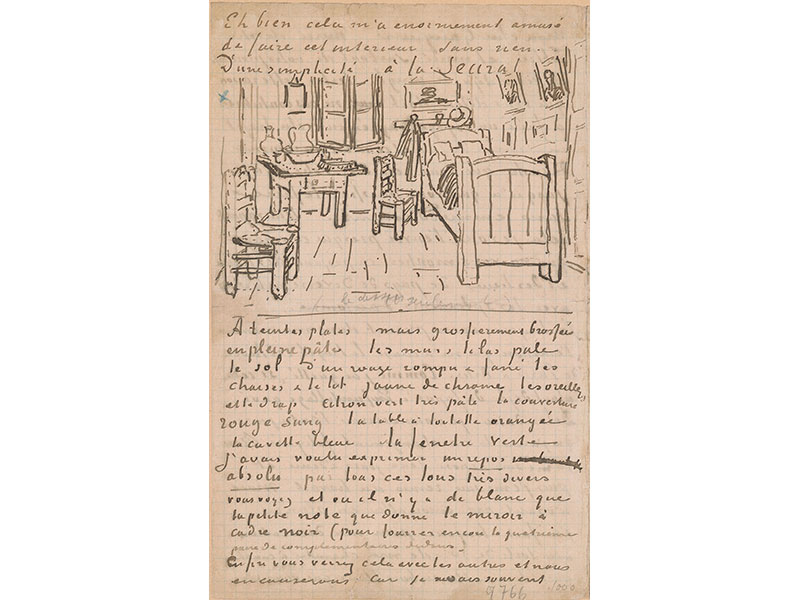 Eh bien cela m'a enormement amusé
de faire cet interieur sans rien.
D'une simplicité à la Seurat
A teintes plates mais grossierement brossée
en pleine pâte les murs lilas pale
le sol d'un rouge rompu & fané les
chaises & le lit jaune de chrome les oreillers
et le drap citron vert très pâle la couverture
rouge sang la table à toilette orangée
la cuvette bleue la fenetre verte
J'avais voulu exprimer un repos
absolu par tous ces tons très divers
vous voyez et ou il n'y a de blanc que
la petite note que donne le miroir à
cadre noir (pour fourrer encore la quatrieme
paire de complementaires dedans)
Enfin vous verrez cela avec les autres et nous
en causerons car je ne sais souvent
9766 1000